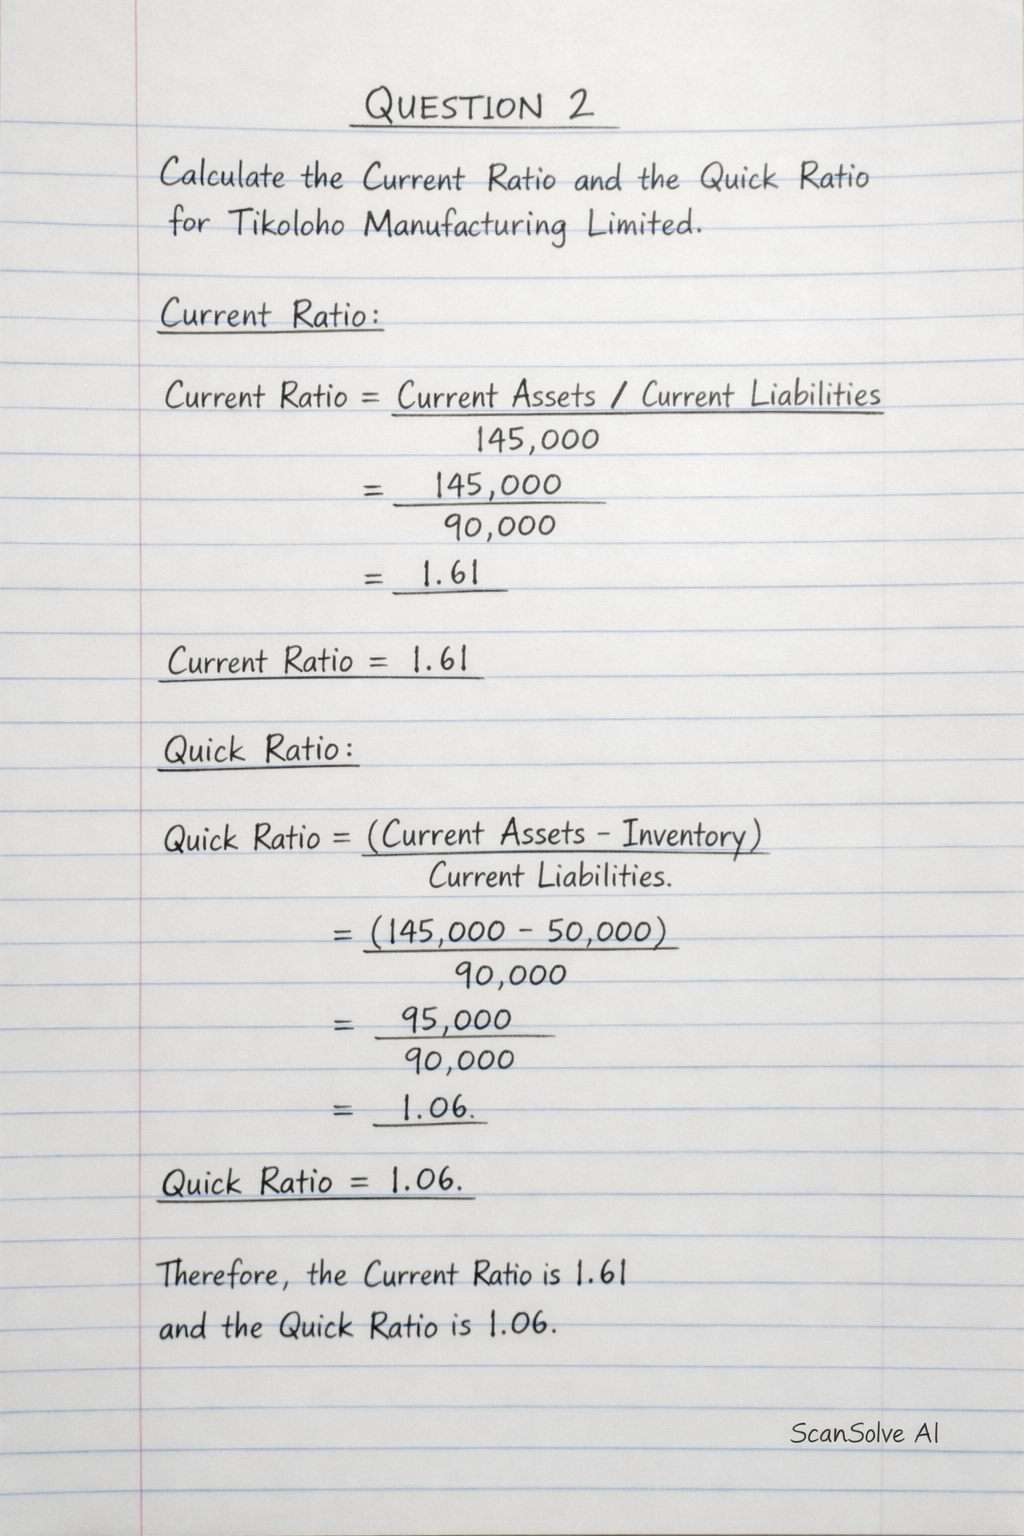 QUESTION 2
Calculate the Current Ratio and the Quick Ratio
for Tikoloho Manufacturing Limited.
Current Ratio:
Current Ratio = Current Assets / Current Liabilities
145,000
= 145,000
90,000
= 1.61
Current Ratio = 1.61
Quick Ratio:
Quick Ratio = (Current Assets - Inventory)
Current Liabilities.
= (145,000 - 50,000)
90,000
= 95,000
90,000
= 1.06.
Quick Ratio = 1.06.
Therefore, the Current Ratio is 1.61
and the Quick Ratio is 1.06.
ScanSolve AI